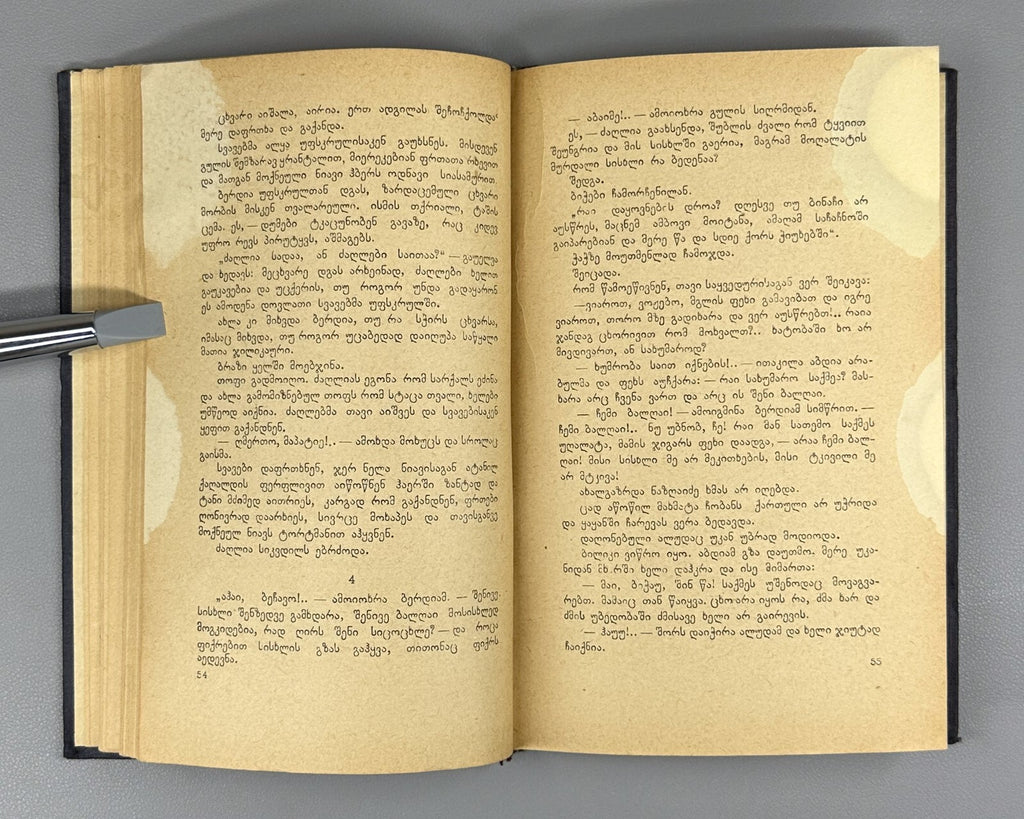 ცხვარი აიშალა, აირია. ერთ ადგილას შეჩოჩქოლდა
მერე დაფრთხა და გაქანდა.
სვავებმა ალყა უფსკრულისაკენ გაუხსნეს. მისდევენ
გულის შემზარავ ყრანტალით, მიერეკებიან ფრთათა რხევით
და მათგან მოქნეული ნიავი ჰბერს ოდნავი სიასამურით.
ბერდია უფსკრულთან დგას, ზარდაცემული ცხვარი
მორბის მისკენ თვალარეული. ისმის თქრიალი, ტაშის
ცემა. ეს, — დუმები ტკაცუნობენ გავაზე, რაც კიდევ
უფრო რევს პირუტყვს, აშმაგებს.
„ძაღლია სადაა, ან ძაღლები საითაა?“ — გაუელვა
და ხედავს: მეცხვარე დგას არხეინად, ძაღლები ხელით
გაუკავებია და უცქერის, თუ როგორ უნდა გადაყარონ
ეს ამოდენა დოვლათი სვავებმა უფსკრულში.
ახლა კი მიხვდა ბერდია, თუ რა სჭირს ცხვარსა,
იმასაც მიხვდა, თუ როგორ უცაბედად დაიღუპა საწყალი
მათია ჯილიკაური.
ბრაზი ყელში მოებჯინა.
თოფი გადმოიღო. ძაღლიას ეგონა რომ სარქალს ეძინა
და ახლა გამომიზნებულ თოფს რომ სტაცა თვალი, ხელები
უმწეოდ აიქნია. ძაღლებმა თავი აიშვეს და სვავებისაკენ
ყეფით გაქანდნენ.
— ღმერთო, მაპატიე!.. — ამოხდა მოხუცს და სროლაც
გაისმა.
სვავები დაფრთხნენ, ჯერ ნელა ნიავისაგან ატანილ
ქაღალდის ფერფლივით აიწოწნენ ჰაერში ზანტად და
ტანი მძიმედ აითრიეს, კარგად რომ გაქანდნენ, ფრთები
ღონივრად დაარხიეს, სივრცე მოხაპეს და თავისგანვე
მოქნეულ ნიავს ტორტმანით აჰყვნენ.
ძაღლია სიკვდილს ებრძოდა.
4
„აჰაი, ბეჩავო!.. — ამოიოხრა ბერდიამ. — შენივე
სისხლი შენზედვე გამხდარა, შენივე ბალღაი მოსისხლედ
მოგკიდებია, რად ღირს შენი სიცოცხლე? — და როცა
ფიქრებით სისხლის გზას გაჰყვა, თითონაც ფიქრს
აედევნა.
54
— აბაიმე!.. — ამოიოხრა გულის სიღრმიდან.
ეს, — ძაღლია გაახსენდა, შუბლის ძვალი რომ ტყვიით
შეუნგრია და მის სისხლში გაერია, მაგრამ მოღალატის
მურდალი სისხლი რა ბედენაა?
შედგა.
ბიჭები ჩამორჩენილან.
„რაი დაყოვნების დროა? დღესვე თუ ბინაჩი არ
აუსწრეს, მაცნემ ამბოვი მოიტანა, ამაღამ საჩაჩნოში
გაიპარებიან და მერე წა და სდიე ქორს ჭიუხებში“.
ჭაჭზე მოუთმენლად ჩამოჯდა.
შეიცადა.
რომ წამოეწივნენ, თავი საყვედურისაგან ვერ შეიკავა:
—ვიაროთ, ვოჟებო, მგლის ფეხი გამავიბათ და იგრე
ვიაროთ, თორო მზე გადიხარა და ვერ აუსწრებთ!.. რაია
ჯანდაგ ცხორივით რომ მოხვალთ?.. ხატობაში ხო არ
მივდივართ, ან სახუმაროდ?
— ხუმრობა საით იქნების!.. — ითაკილა აბდია არა-
ბულმა და ფეხს აუჩქარა: — რაი სახუმარო საქმეა? მას-
ხარა არც ჩვენა ვართ და არც ის შენი ბალღაი.
— ჩემი ბალღაი! — ამოიგმინა ბერდიამ სიმწრით. —
ჩემი ბალღაი!.. ნუ უბნობ, ჩე! რაი მან სათემო საქმეს
უღალატა, მამის ჯიგარს ფეხი დაადგა, — არაა ჩემი ბალ-
ღაი! მისი სისხლი მე არ მეკითხების, მისი ტკივილი მე
არ მტკივა!
ახალგაზრდა ნაზღაიძე ხმას არ იღებდა.
ცად აწოწილ მახმატა ჩობანს ქართული არ უჭრიდა
და ყაყანში ჩარევას ვერა ბედავდა.
დაღონებული ალუდაც უკან უბრად მოდიოდა.
ბილიკი ვიწრო იყო. აბდიამ გზა დაუთმო. მერე უკა-
ნიდან მხარში ხელი დაჰკრა და ისე მიმართა:
— მაი, ბიჭაუ, შინ წა! საქმეს უშენოდაც მოვაგვა-
რებთ. მამაიც თან წაიყვა. ცხოარა იყოს რა, ძმა ხარ და
ძმის უბედობაში ძმისავე ხელი არ გაირევის.
— ჰაუუ!.. — შორს დაიჭირა ალუდამ და ხელი ჯიუტად
ჩაიქნია.
55